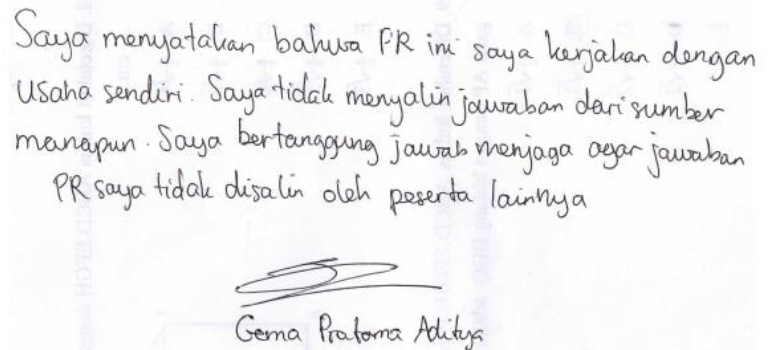 Saya menyatakan bahwa PR ini saya kerjakan dengan
Usaha sendiri. Saya tidak menyalin jawaban dari sumber
manapun. Saya bertanggung jawab menjaga agar jawaban
PR saya tidak disalin oleh peserta lainnya
Gema Pratama Aditya